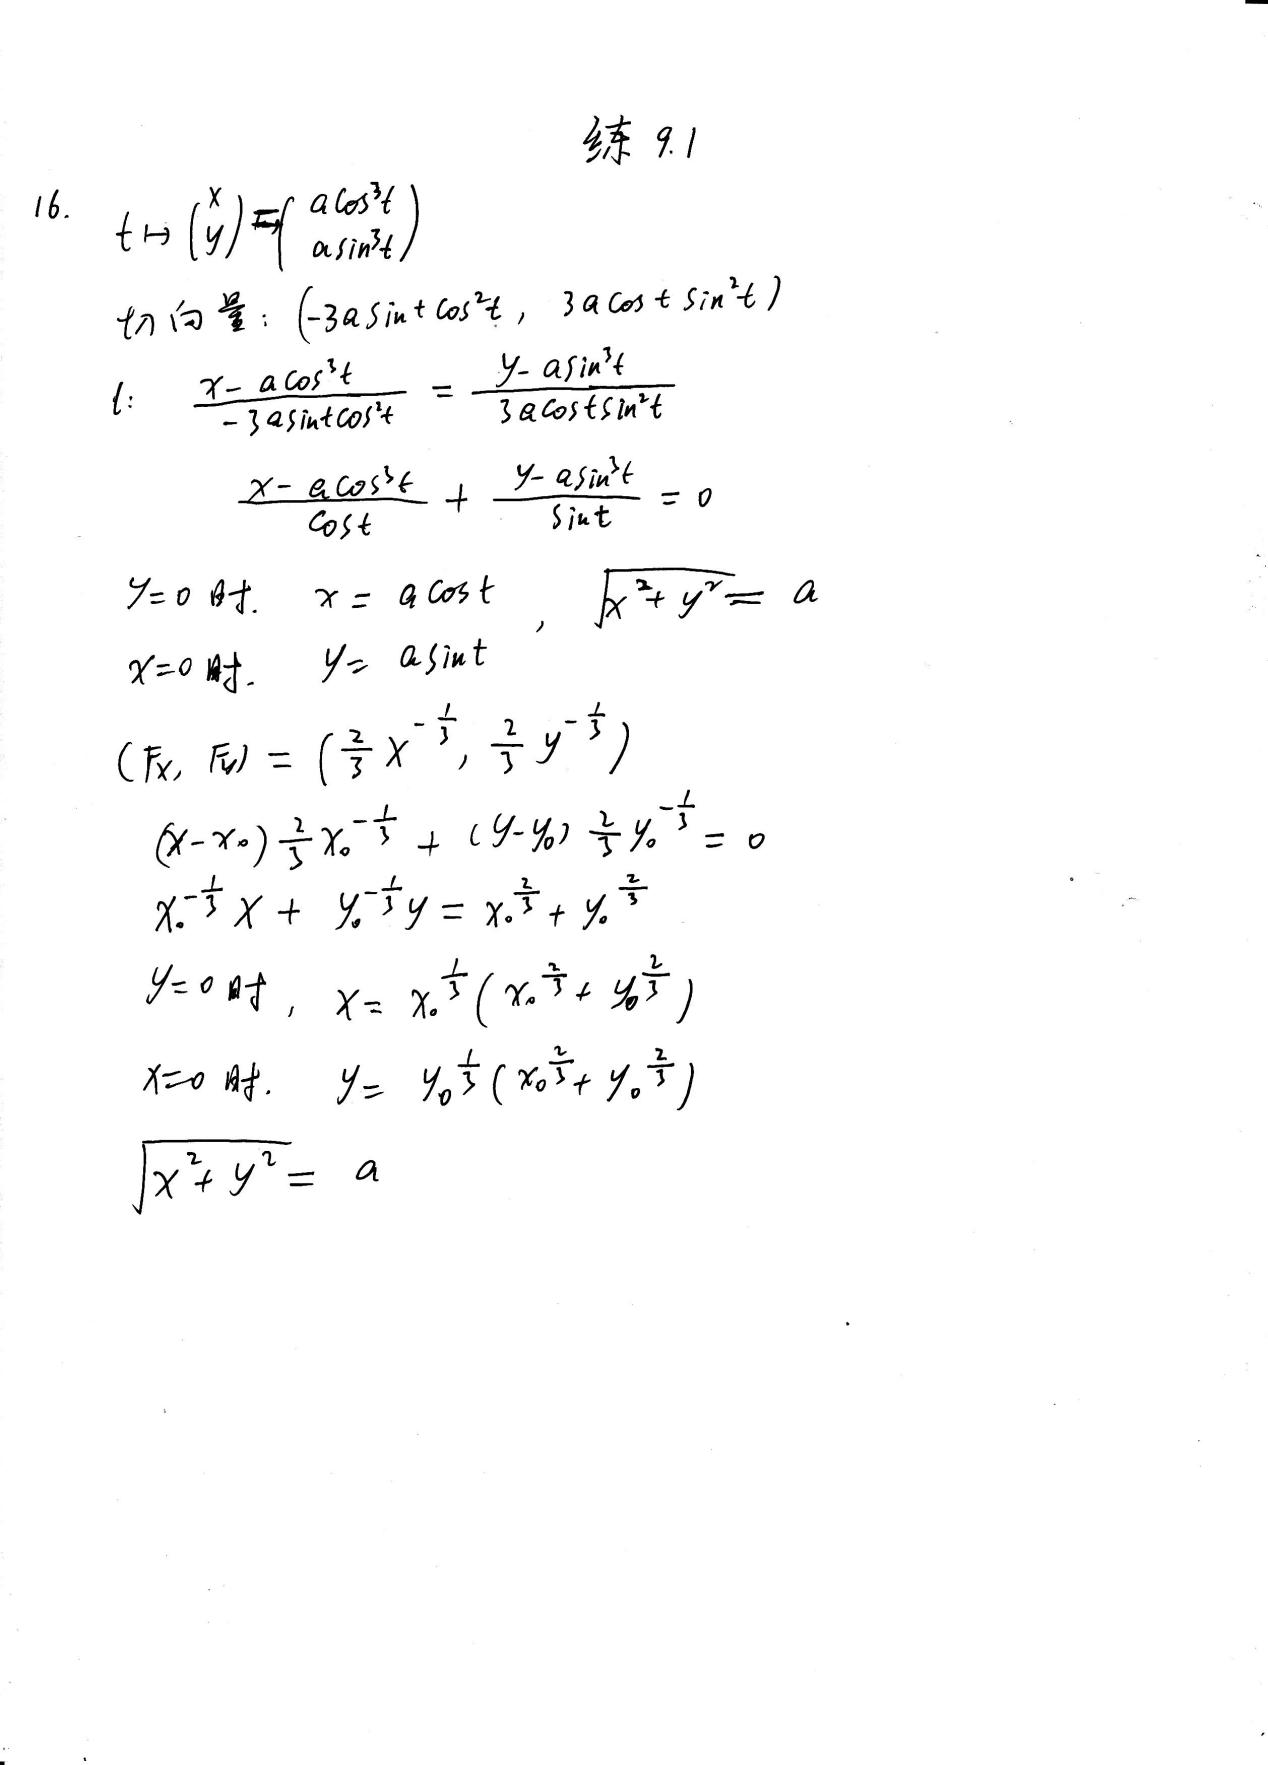 练 9.1
16. t ↦ (x y) = (a cos³t a sin³t)
切向量: (-3a sin t cos²t, 3a cos t sin²t)
l: (x - a cos³t)/(-3a sin t cos²t) = (y - a sin³t)/(3a cos t sin²t)
(x - a cos³t)/(cos t) + (y - a sin³t)/(sin t) = 0
y=0时. x = a cos t , √(x²+y²) = a
x=0时. y = a sin t
(Fx, Fy) = (2/3 x^(-1/3), 2/3 y^(-1/3))
(x-x₀) 2/3 x₀^(-1/3) + (y-y₀) 2/3 y₀^(-1/3) = 0
x₀^(-1/3) x + y₀^(-1/3) y = x₀^(2/3) + y₀^(2/3)
y=0时, x = x₀^(1/3) (x₀^(2/3) + y₀^(2/3))
x=0时. y = y₀^(1/3) (x₀^(2/3) + y₀^(2/3))
√(x²+y²) = a